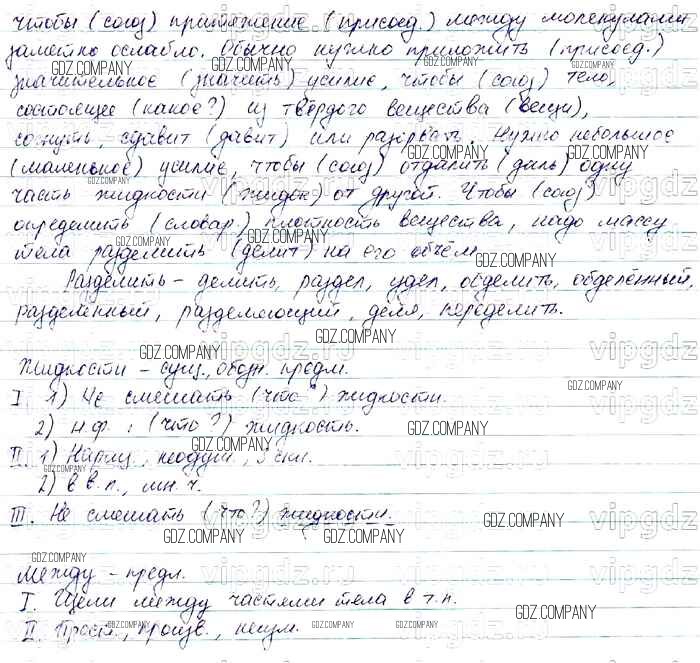 чтобы (союз) притяжение (присоед.) между молекулами
заметно ослабло. Обычно нужно приложить (присоед.)
значительное (значить) усилие, чтобы (союз) тело,
состоящее (какое?) из твёрдого вещества (вещи),
сжать, сдавит (давит) или разорвать. Нужно небольшое
(маленькое) усилие, чтобы (союз) отдалить (даль) одну
часть жидкости от другой. Чтобы (союз)
определить (словар) плотность вещества, надо массу
тела разделить (делит) на его объём.
Разделить – делить, раздел, удел, обделить, обделённый,
разделенный, разделяющий, деля, переделить.
Жидкости – сущ., обозн. предм.
I 1) Не смешать (что?) жидкости.
2) Н.ф.: (что?) жидкость.
II. 1) Нариц., неодуш., 3 скл.
2) в в.п., мн.ч.
III. Не смешать (что?) жидкости.
Между – предл.
I. Щели между частями тела в т.п.
II. Прост., произв., неизм.
GDZ.COMPANY
vipgdz.ru